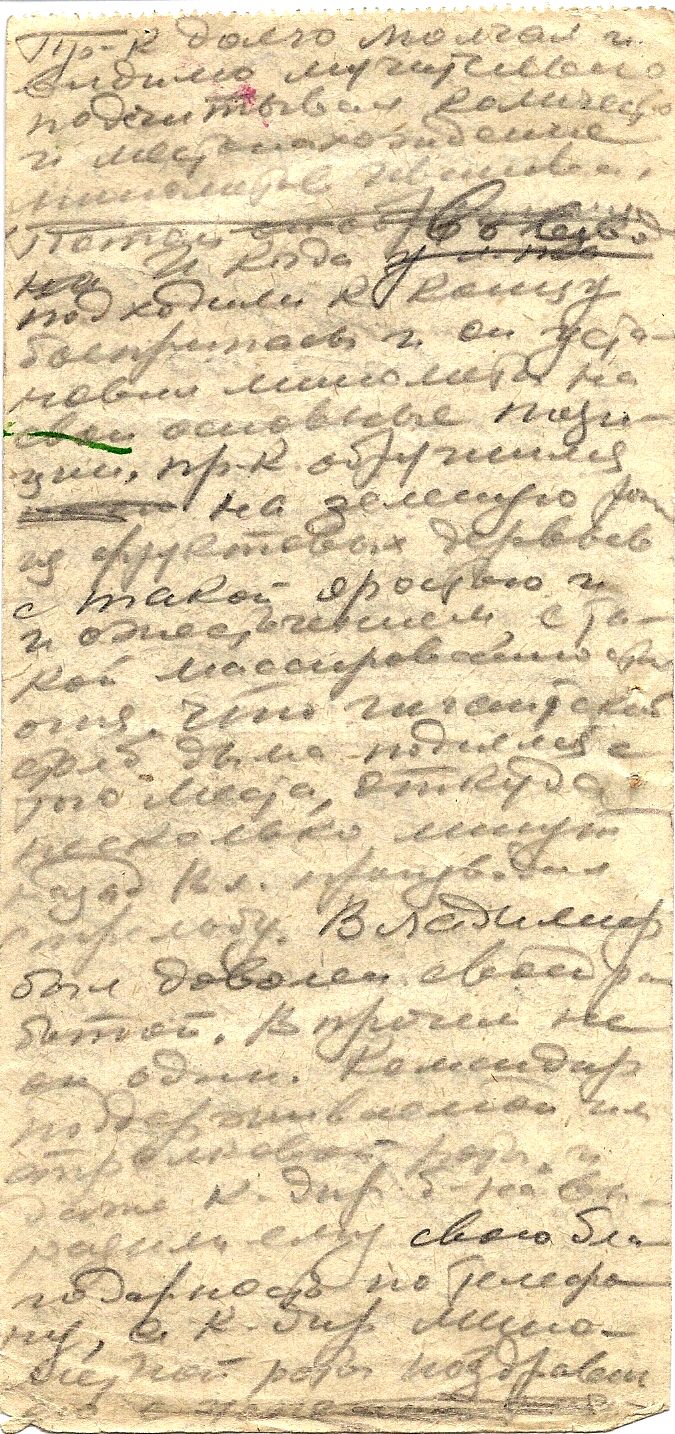 Пр-к долго молчал и
видимо мучительно
подсчитывал количество
и местонахождение
минометов
Потом
И когда
подходили к концу
боеприпасы и он уста-
новил минометы на
свои основные пози-
ции, пр-к обрушился
на зеленую
из фруктовых деревьев
с такой яростью и
и ожесточением с та-
кой массированностью
огня, что гигантской
дыма поднялся с
того места, откуда
несколько минут
назад Вл. производил
стрельбу. Владимир
был доволен своей ра-
ботой. Впрочем не
он один. Командир
поддерживаемой им
стрелковой роты и
даже к-дир б-на вы-
разили ему свою бла-
годарность по телефо-
ну, а к-дир мино-
метной роты поздравил
его с